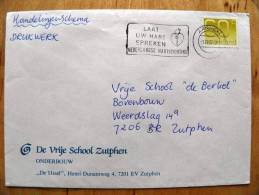 Handelingenschema
DRUKWERK
LAAT
UW HART
SPREKEN
NEDERLANDSE HARTSTICHTING
60
Vrije School "de Berkel"
Bovenbouw
Weerdslag 14ᵃ
7206 BR Zutphen
De Vrije School Zutphen
ONDERBOUW
"De IJssel", Henri Dunantweg 4, 7201 EV Zutphen